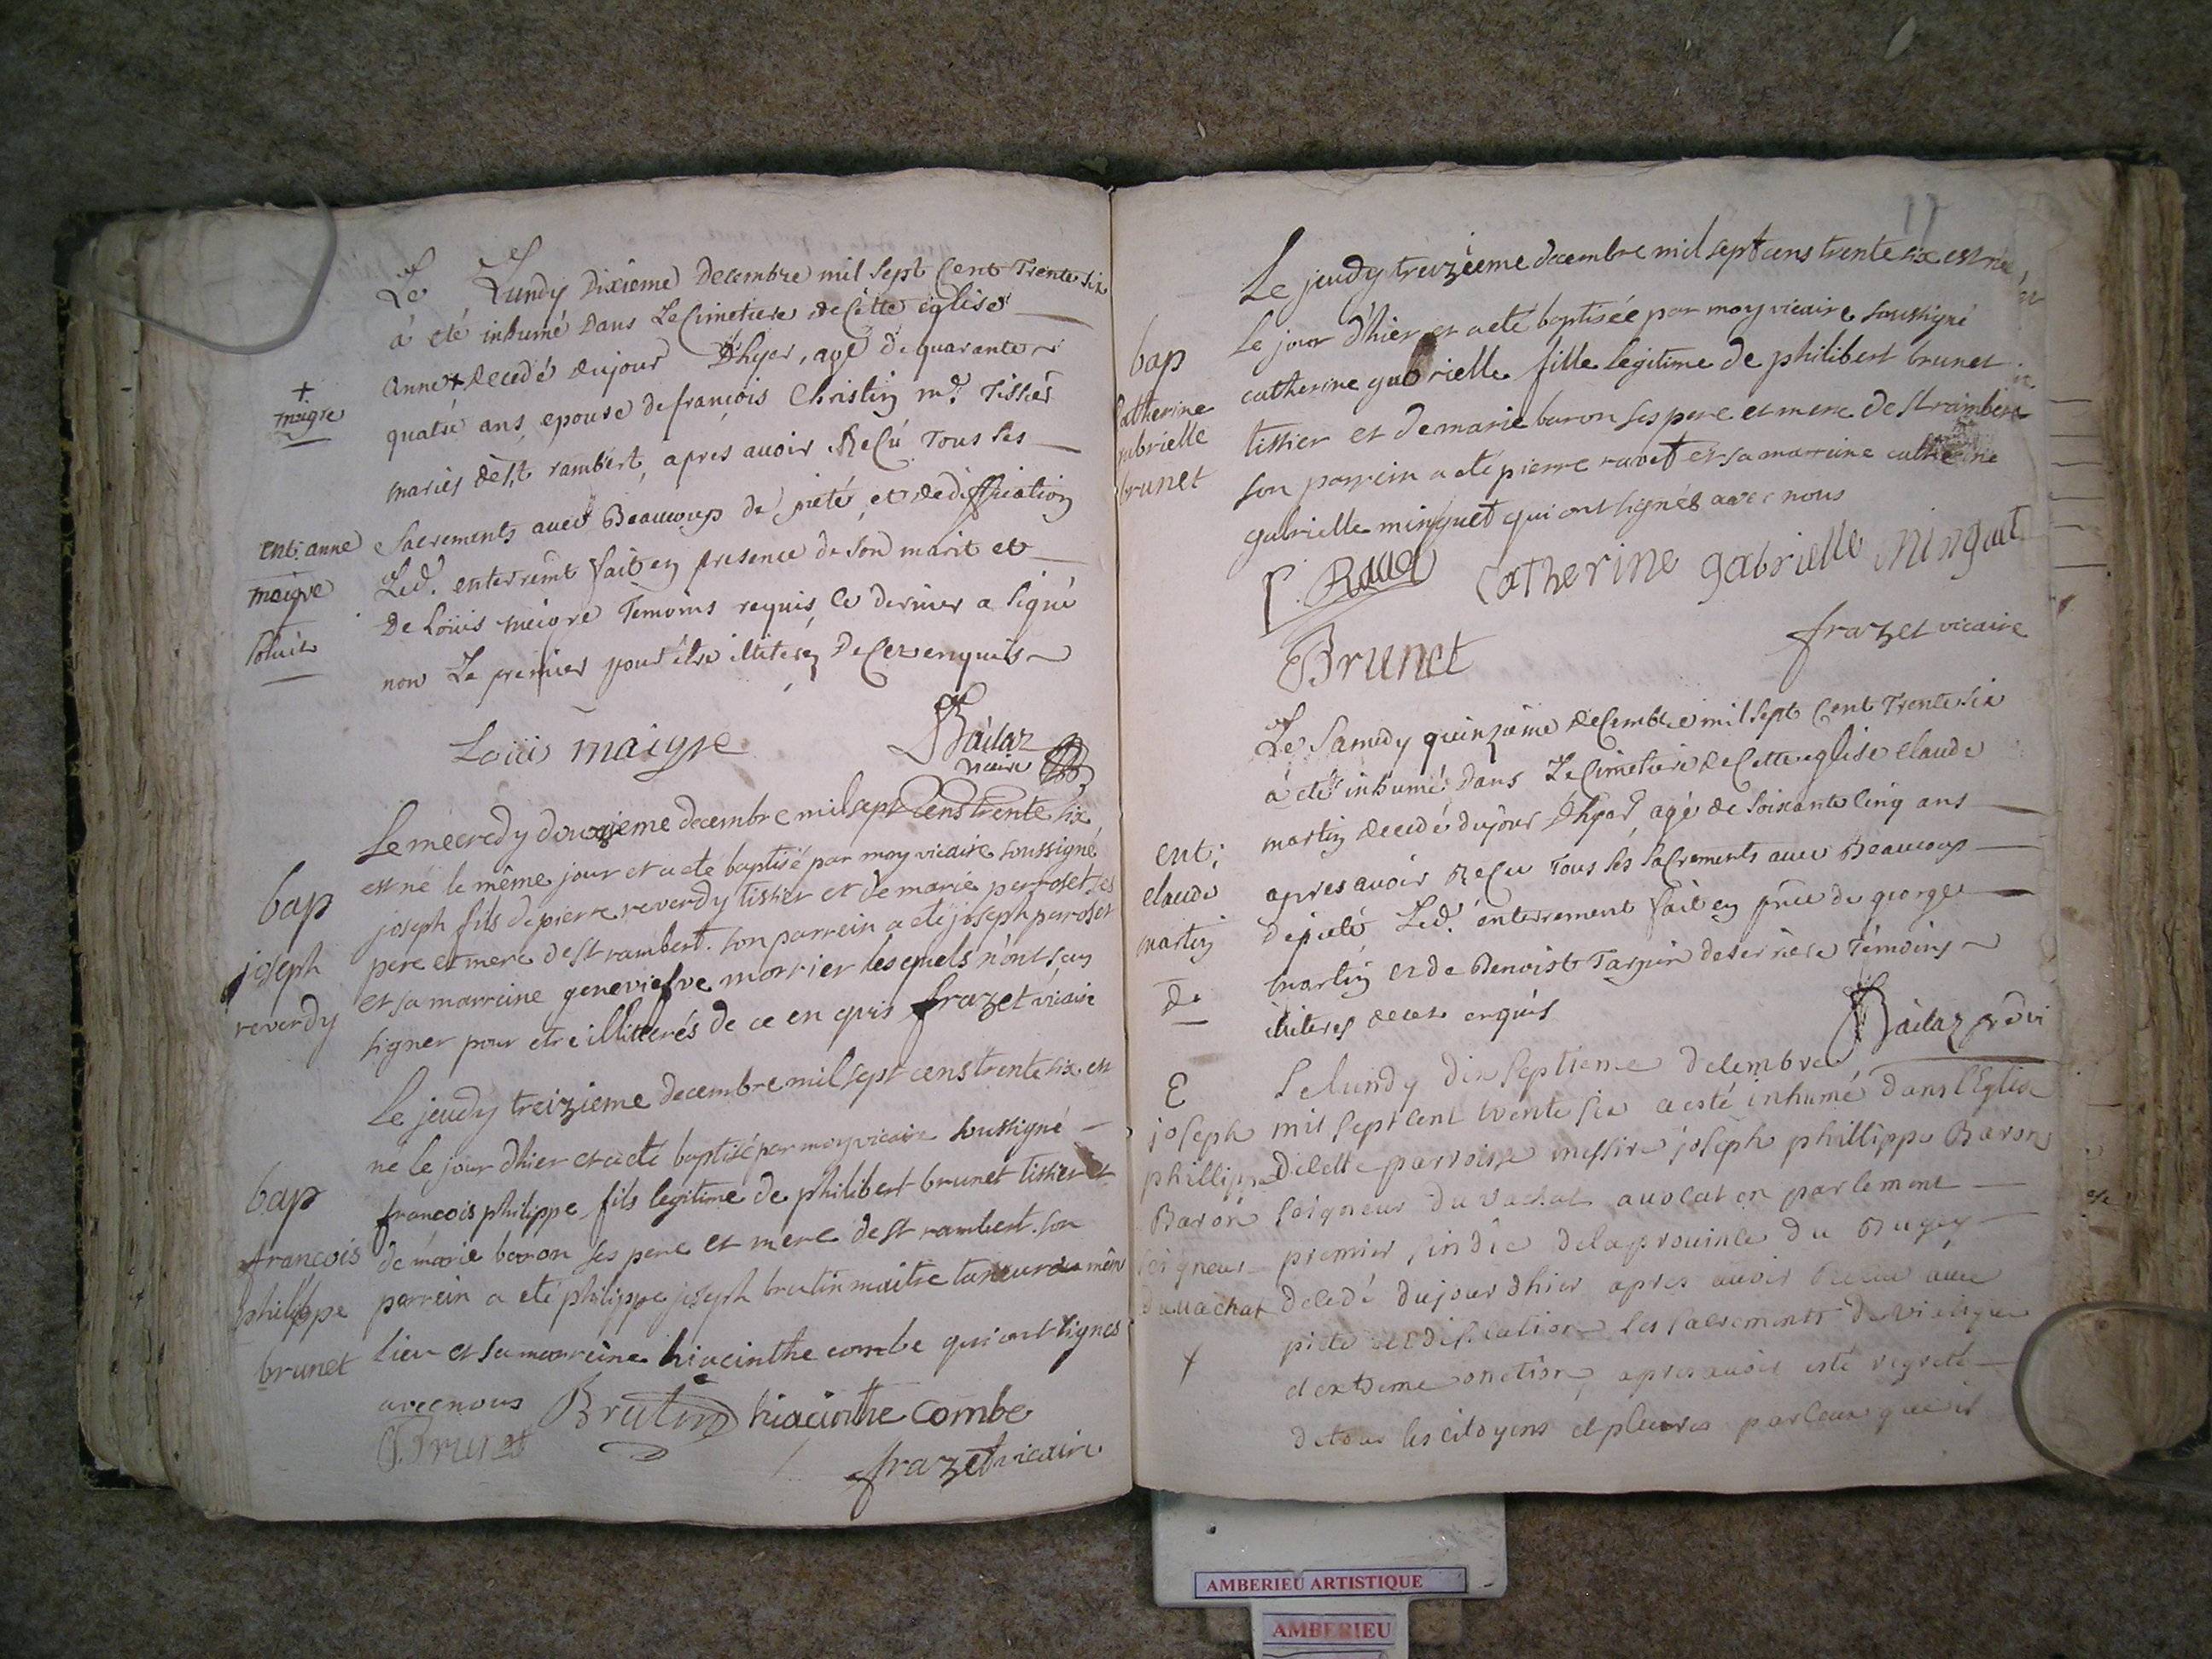 Le Lundy Dixieme Decembre mil sept Cent Trente six
á eté inhumé Dans Le Cimetiere de Cette eglise
anne + decedé du jour D'hyer, agé de quarante
quatre ans, epouse de francois Christin md. Tissier
mariés de st. rambert, apres avoir Recû Tous ses
Sacrements avec Beaucoup de pieté, et de diffication
Led. enterremt fait en presence de son marit et
De Loüis meigre Temoins requis, Ce dernier a signé
non Le premier pour être illiterés De Ce enquis
+
maigre
ent: anne
maigre
Loüis maigre
Baılaz
vicaire
Le mecredy douzieme decembre mil sept Cens trente six
est né le même jour et a eté baptisé par moy vicaire soussigné
joseph fils de pierre reverdy tissier et de marie perroset ses
pere et mere de st rambert. son parrein a eté joseph paroset
et sa marreine geneviefve morrier lesquels n'ont sçu
signer pour etre illitterés de ce en quis frazet vicaire
bap
joseph
reverdy
Le jeudy treizieme decembre mil sept cens trente six est
né le jour dhier et a eté baptisé par moy vicaire soussigné
francois philippe fils legitime de philibert brunet tissier et
de marie baron ses pere et mere de st rambert. son
parrein a eté philippe joseph brutin maitre taneur du mêm
lieu et sa marreine hiacinthe combe qui ont signés
avec nous
bap
francois
philippe
brunet
Brutin hiacinthe combe
Brunet
frazet vicaire
17
Le jeudy treizieme decembre mil sept cens trente six est née
le jour d'hier et a eté baptisée par moy vicaire soussigné
catherine gabrielle fille legitime de philibert brunet
tissier et de marie baron ses pere et mere de st rambert
son parrein a eté pierre ravet et sa marreine catherine
gabrielle minguet qui ont signés avec nous
bap
Catherine
gabrielle
brunet
P. Ravet Catherine gabrielle Minguet
Brunet
frazet vicaire
Le Samedy quinzieme decembre mil sept Cent Trente six
á eté inhumé Dans Le Cimetiere de Cette eglise Claude
martin decedé du jour D'hyer agé de soixante Cinq ans
apres avoir Recu Tous ses Sacrements avec Beaucoup
de pieté Led. enterrement fait en pnce de george
martin et de Benoist Tarpin de serriere Temoins
illiteres de ce enquis
Baılaz
ent:
claude
martin
Le lundy dix septieme decembre
mil sept cent trente six a esté inhumé dans l'Eglise
de cette parroisse messire joseph phillippe Baron
seigneur du vachat avocat en parlement
premier sindic de la province du Bugey
decedé du jour d'hier apres avoir receu avec
pieté et edification les sacrements de viatique
et extreme onction, apres avoir esté regreté
de tous les citoyens et pleures par ceux que il
E
joseph
phillippe
Baron
seigneur
du vachat
AMBERIEU ARTISTIQUE
AMBERIEU